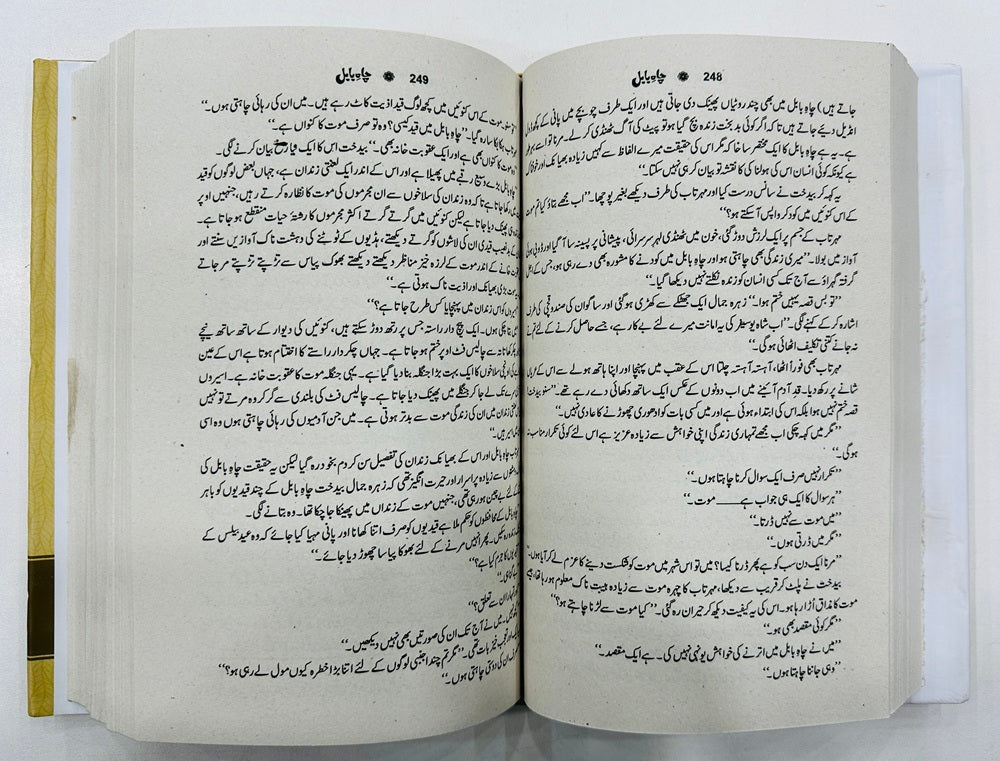 248 ❋ چاہِ بابل
جاتے ہیں) چاہِ بابل میں بھی چند روٹیاں پھینک دی جاتی ہیں اور ایک طرف چوبچے میں پانی کے کچھ
انڈیل دیئے جاتے ہیں تاکہ اگر کوئی بد بخت زندہ بچ گیا ہو تو پیٹ کی آگ ٹھنڈی کر لے۔ مرنا تو اسے
ہے۔ یہ ہے چاہِ بابل کا ایک مختصر سا خاکہ مگر اس کی حقیقت میرے الفاظ سے کہیں زیادہ بھیانک اور خوفناک
ہے کیونکہ کوئی انسان اس کی ہولناکی کا نقشہ تو بیان کر ہی نہیں سکتا۔‘‘
یہ کہہ کر بیدخت نے سانس درست کیا اور مہرتاب کی طرف دیکھے بغیر پوچھا۔ ’’اب مجھے بتاؤ کیا تم موت
کے اس کنوئیں میں کود کر واپس آ سکتے ہو؟‘‘
مہرتاب کے جسم پر ایک لرزش دوڑ گئی، خون میں ٹھنڈی لہر سرسرائی، پیشانی پر پسینہ سا آ گیا اور ڈوبی ہوئی
آواز میں بولا۔ ’’میری زندگی بھی چاہتی ہو اور چاہِ بابل میں کودنے کا مشورہ بھی دے رہی ہو، جس کے
گرفتہ گہراؤ سے آج تک کسی انسان کو زندہ نکلتے نہیں دیکھا گیا۔‘‘
’’تو بس قصہ یہیں ختم ہوا۔‘‘ زہرہ جمال ایک جھٹکے سے کھڑی ہو گئی اور ساگوان کی صندوقچی کی طرف
اشارہ کر کے کہنے لگی۔ ’’اب شاہ یوسیفر کی یہ امانت میرے لئے بے کار ہے، جسے حاصل کرنے کے لئے تم نے
نہ جانے کتنی تکلیف اٹھائی ہوگی۔‘‘
مہرتاب بھی فوراً اٹھا، آہستہ آہستہ چلتا اس کے عقب میں پہنچا اور اپنا ہاتھ ہولے سے اس کے
شانے پر رکھ دیا۔ قدِ آدم آئینے میں اب دونوں کے عکس ایک ساتھ دکھائی دے رہے تھے۔ ’’سنو بیدخت
قصہ ختم نہیں ہوا بلکہ اس کی ابتداء ہوئی ہے اور میں کسی بات کو ادھوری چھوڑنے کا عادی نہیں۔‘‘
’’مگر میں کہہ چکی اب مجھے تمہاری زندگی اپنی خواہش سے زیادہ عزیز ہے اس لئے کوئی تکرار مناسب نہ
ہوگی۔‘‘
’’تکرار نہیں صرف ایک سوال کرنا چاہتا ہوں۔‘‘
’’ہر سوال کا ایک ہی جواب ہے____ موت۔‘‘
’’میں موت سے نہیں ڈرتا۔‘‘
’’مگر میں ڈرتی ہوں۔‘‘
’’مرنا ایک دن سب کو ہے پھر ڈرنا کیسا؟ میں تو اس شہر میں موت کو شکست دینے کا عزم لے کر آیا ہوں۔‘‘
بیدخت نے پلٹ کر قریب سے دیکھا، مہرتاب کا چہرہ موت سے زیادہ ہیبت ناک معلوم ہو رہا تھا، جیسے
موت کا مذاق اُڑا رہا ہو۔ اس کی یہ کیفیت دیکھ کر حیران رہ گئی۔ ’’کیا موت سے لڑنا چاہتے ہو؟‘‘
’’مگر کوئی مقصد بھی ہو۔‘‘
’’میں نے چاہِ بابل میں اترنے کی خواہش یونہی نہیں کی۔ ہے ایک مقصد۔‘‘
’’وہی جاننا چاہتا ہوں۔‘‘
249 ❋ چاہِ بابل
موت کے اس کنوئیں میں کچھ لوگ قید اذیت کاٹ رہے ہیں۔ میں ان کی رہائی چاہتی ہوں۔‘‘
ہکا بکا سا رہ گیا۔ ’’چاہِ بابل میں قید کیسی؟ وہ تو صرف موت کا کنواں ہے۔‘‘
موت کا کنواں بھی ہے اور ایک عقوبت خانہ بھی۔‘‘ بیدخت اس کا ایک نیا رخ بیان کرنے لگی۔
بابل بڑے وسیع رقبے میں پھیلا ہے اور اس کے اندر ایک لعنتی زندان ہے، جہاں بعض لوگوں کو قید
رکھا جاتا ہے تاکہ وہ زندان کی سلاخوں سے ان مجرموں کی موت کا نظارہ کرتے رہیں، جنہیں اوپر
پھینک دیا جاتا ہے لیکن کنوئیں میں گرتے گرتے اکثر مجرموں کا رشتۂ حیات منقطع ہو جاتا ہے۔
نصیب قیدی ان کی لاشوں کو گرتے دیکھتے، ہڈیوں کے ٹوٹنے کی دہشت ناک آوازیں سنتے اور
خانے کے اندر موت کے لرزہ خیز مناظر دیکھتے دیکھتے بھوک پیاس سے تڑپتے تڑپتے مر جاتے
بڑی بھیانک اور اذیت ناک ہوتی ہے۔‘‘
کو اس زندان میں پہنچایا کس طرح جاتا ہے؟‘‘
بتا چکی ہوں۔ ایک پیچ دار راستہ جس پر رتھ دوڑ سکتے ہیں، کنوئیں کی دیوار کے ساتھ ساتھ نیچے
سے چالیس فٹ اوپر ختم ہو جاتا ہے۔ جہاں چکر دار راستے کا اختتام ہوتا ہے اس کے عین
اونچی سلاخوں کا ایک بہت بڑا جنگلہ بنا دیا گیا ہے۔ یہی جنگلہ موت کا عقوبت خانہ ہے۔ اسیروں
لے جا کر جنگلے میں پھینک دیا جاتا ہے۔ چالیس فٹ کی بلندی سے گر کر وہ مرتے تو نہیں
زندان میں ان کی زندگی موت سے بدتر ہوتی ہے۔ میں جن آدمیوں کی رہائی چاہتی ہوں وہ اسی
اسیر ہیں۔‘‘
چاہِ بابل اور اس کے بھیانک زندان کی تفصیل سن کر دم بخود رہ گیا لیکن یہ حقیقت چاہِ بابل کی
سے زیادہ پر اسرار اور حیرت انگیز تھی کہ زہرہ جمال بیدخت چاہِ بابل کے چند قیدیوں کو باہر
بے چین ہو رہی تھی، جنہیں موت کے زنداں میں پھینکا جا چکا تھا۔ وہ بتانے لگی۔
بابل کے محافظوں کو حکم ملا ہے قیدیوں کو صرف اتنا کھانا اور پانی مہیا کیا جائے کہ وہ عید بیلس کے
زندہ رہ سکیں۔ پھر انہیں مرنے کے لئے بھوکا پیاسا چھوڑ دیا جائے۔‘‘
کا جرم کیا ہے؟‘‘
تمہارا ان سے تعلق؟‘‘
میں نے آج تک ان کی صورتیں بھی نہیں دیکھیں۔‘‘
تعجب خیز بات تھی۔ ’’مگر تم چند اجنبی لوگوں کے لئے اتنا بڑا خطرہ کیوں مول لے رہی ہو؟‘‘
ان کی دوستی چاہتی ہوں۔‘‘